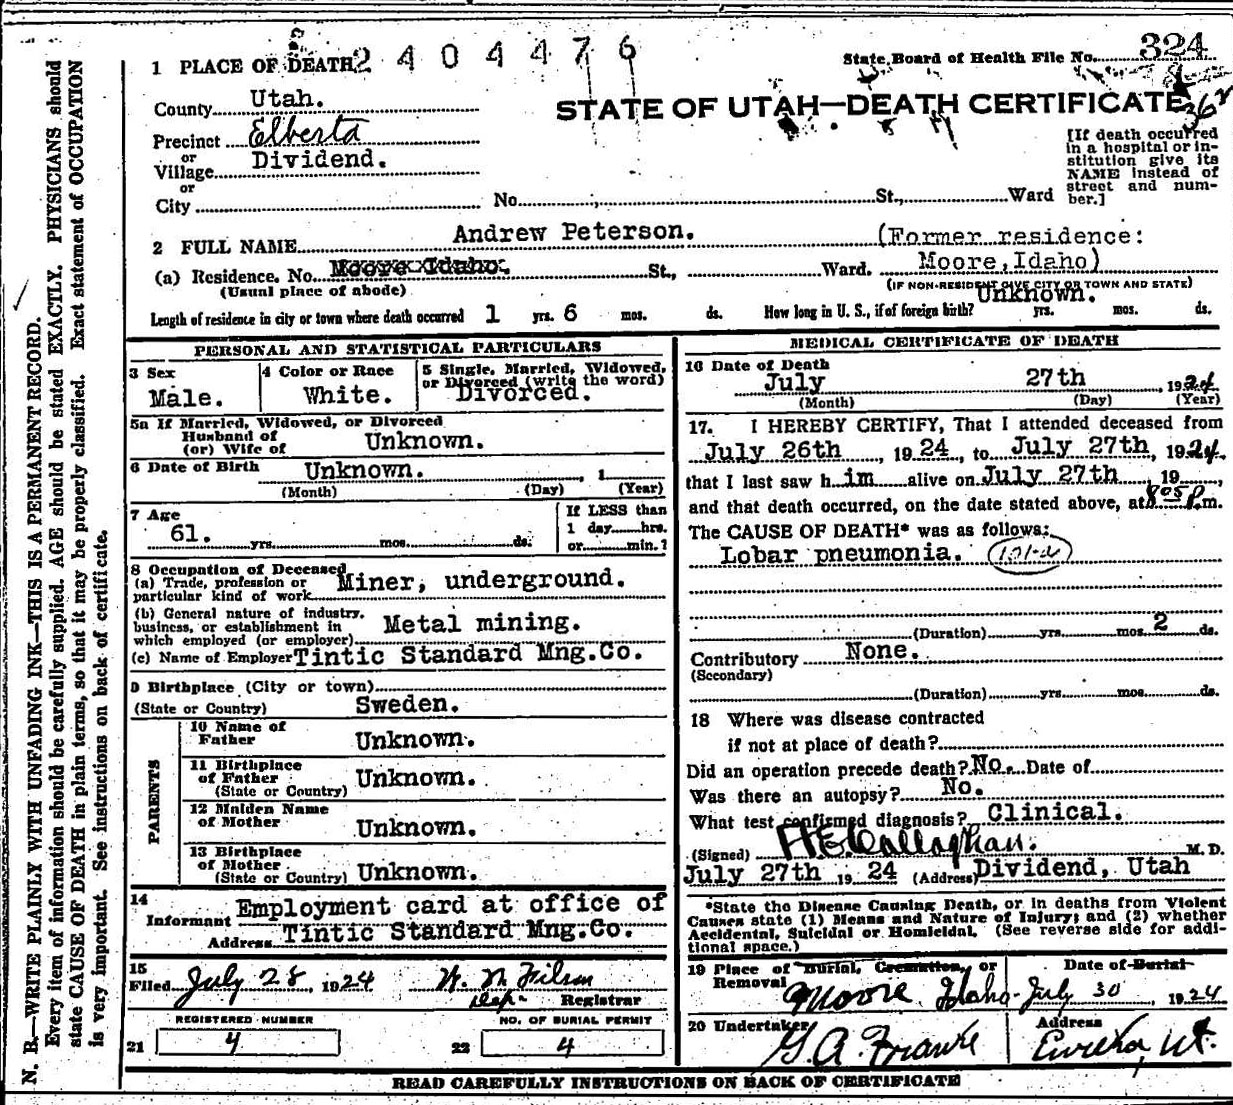 2404476
State Board of Health File No. 324
1 PLACE OF DEATH
STATE OF UTAH—DEATH CERTIFICATE
362
County Utah.
Precinct Elberta
or
Village Dividend.
or
City No. St., Ward
[If death occurred
in a hospital or in-
stitution give its
NAME instead of
street and num-
ber.]
2 FULL NAME Andrew Peterson. (Former residence:
(a) Residence. No. Moore Idaho. St., Ward. Moore, Idaho)
(Usual place of abode) (IF NON-RESIDENT GIVE CITY OR TOWN AND STATE)
Length of residence in city or town where death occurred 1 yrs. 6 mos. ds. How long in U. S., if of foreign birth? Unknown. yrs. mos. ds.
PERSONAL AND STATISTICAL PARTICULARS
3 Sex Male.
4 Color or Race White.
5 Single, Married, Widowed,
or Divorced (write the word)
Divorced.
5a If Married, Widowed, or Divorced
Husband of
(or) Wife of Unknown.
6 Date of Birth Unknown. , 1
(Month) (Day) (Year)
7 Age
61. yrs. mos. ds.
If LESS than
1 day hrs.
or min.?
8 Occupation of Deceased
(a) Trade, profession or
particular kind of work Miner, underground.
(b) General nature of industry,
business, or establishment in
which employed (or employer) Metal mining.
(c) Name of Employer Tintic Standard Mng.Co.
9 Birthplace (City or town)
(State or Country) Sweden.
PARENTS
10 Name of
Father Unknown.
11 Birthplace
of Father
(State or Country) Unknown.
12 Maiden Name
of Mother Unknown.
13 Birthplace
of Mother
(State or Country) Unknown.
14
Informant Employment card at office of
Address Tintic Standard Mng.Co.
15
Filed July 28, 1924
Dep. Registrar
REGISTERED NUMBER
21 4
NO. OF BURIAL PERMIT
22 4
MEDICAL CERTIFICATE OF DEATH
16 Date of Death
July 27th , 1924
(Month) (Day) (Year)
17. I HEREBY CERTIFY, That I attended deceased from
July 26th , 1924, to July 27th, 1924,
that I last saw him alive on July 27th , 19 ,
and that death occurred, on the date stated above, at 8:05 P.m.
The CAUSE OF DEATH* was as follows:
Lobar pneumonia. 101-a
(Duration) yrs. mos. 2 ds.
Contributory None.
(Secondary)
(Duration) yrs. mos. ds.
18 Where was disease contracted
if not at place of death?
Did an operation precede death? No. Date of
Was there an autopsy? No.
What test confirmed diagnosis? Clinical.
(Signed) H E Callaghan. M. D.
July 27th 1924 (Address) Dividend, Utah
*State the Disease Causing Death, or in deaths from Violent
Causes state (1) Means and Nature of Injury; and (2) whether
Accidental, Suicidal or Homicidal. (See reverse side for addi-
tional space.)
19 Place of Burial, Cremation, or
Removal Moore Idaho
Date of Burial
July 30 , 1924
20 Undertaker
G. A. Franke
Address
Eureka, Ut.
READ CAREFULLY INSTRUCTIONS ON BACK OF CERTIFICATE
N. B.—WRITE PLAINLY WITH UNFADING INK—THIS IS A PERMANENT RECORD.
Every item of information should be carefully supplied. AGE should be stated EXACTLY. PHYSICIANS should
state CAUSE OF DEATH in plain terms, so that it may be properly classified. Exact statement of OCCUPATION
is very important. See instructions on back of certificate.